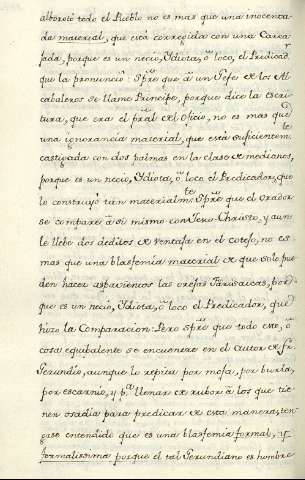 alborotó todo el Pueblo no es mas que una inocenta-
da material, que está corregida con una Carca-
jada, porque es un necio, Ydiota, ò loco, el Predicadr
que la pronunció: Spre que à un Jefe de los Al-
cabaleros se llame Principe, porque dice la Escri-
tura, que era el pral del oficio, no es mas que
una ignorancia material, que está suficientemte
castigada con dos palmas en la clase de medianos,
porque es un necio, Ydiota, ò loco el Predicador, que
lo construyó tan materialmte: Spre que el Orador
se compare à si mismo con Jesu-Christo, y aun
le llebe dos deditos de ventaja en el cotejo, no es
mas que una blasfemia material de que solo pue-
den hacer aspavientos las orejas Farisaicas, por-
que es un necio, Ydiota, ò loco el Predicador, que
hizo la Comparacion: Pero spre que todo esto, ò
cosa equibalente se encuentre en el Autor de fr.
Gerundio, aunque lo repita por mofa, por burla,
por escarnio, y pa llenar de rubor à los que tie-
nen osadia para predicar de esta manera, ten-
gase entendido que es una blasfemia formal, y
formalissima porque el tal Gerundiano es hombre